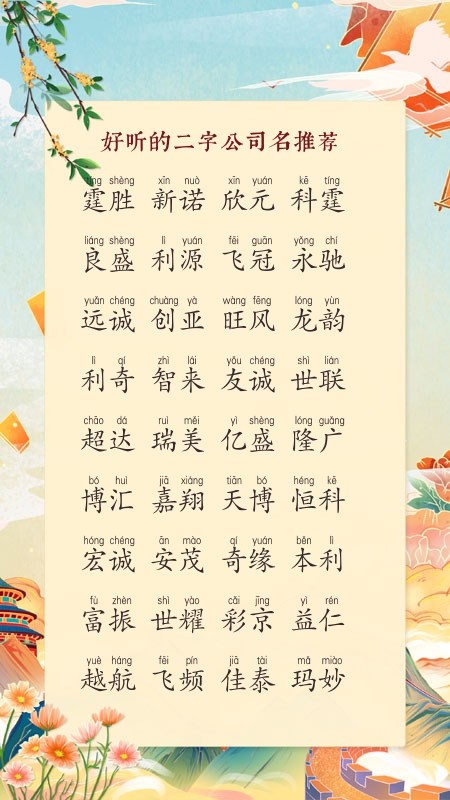 好听的二字公司名推荐
tíng shèng xīn nuò xīn yuán kē tíng
霆胜 新诺 欣元 科霆
liáng shèng lì yuán fēi guān yǒng chí
良盛 利源 飞冠 永驰
yuǎn chéng chuàng yà wàng fēng lóng yùn
远诚 创亚 旺风 龙韵
lì qí zhì lái yǒu chéng shì lián
利奇 智来 友诚 世联
chāo dá ruì měi yì shèng lóng guǎng
超达 瑞美 亿盛 隆广
bó huì jiā xiáng tiān bó héng kē
博汇 嘉翔 天博 恒科
hóng chéng ān mào qí yuán běn lì
宏诚 安茂 奇缘 本利
fù zhèn shì yào cǎi jīng yì rén
富振 世耀 彩京 益仁
yuè háng fēi pín jiā tài mǎ miào
越航 飞频 佳泰 玛妙